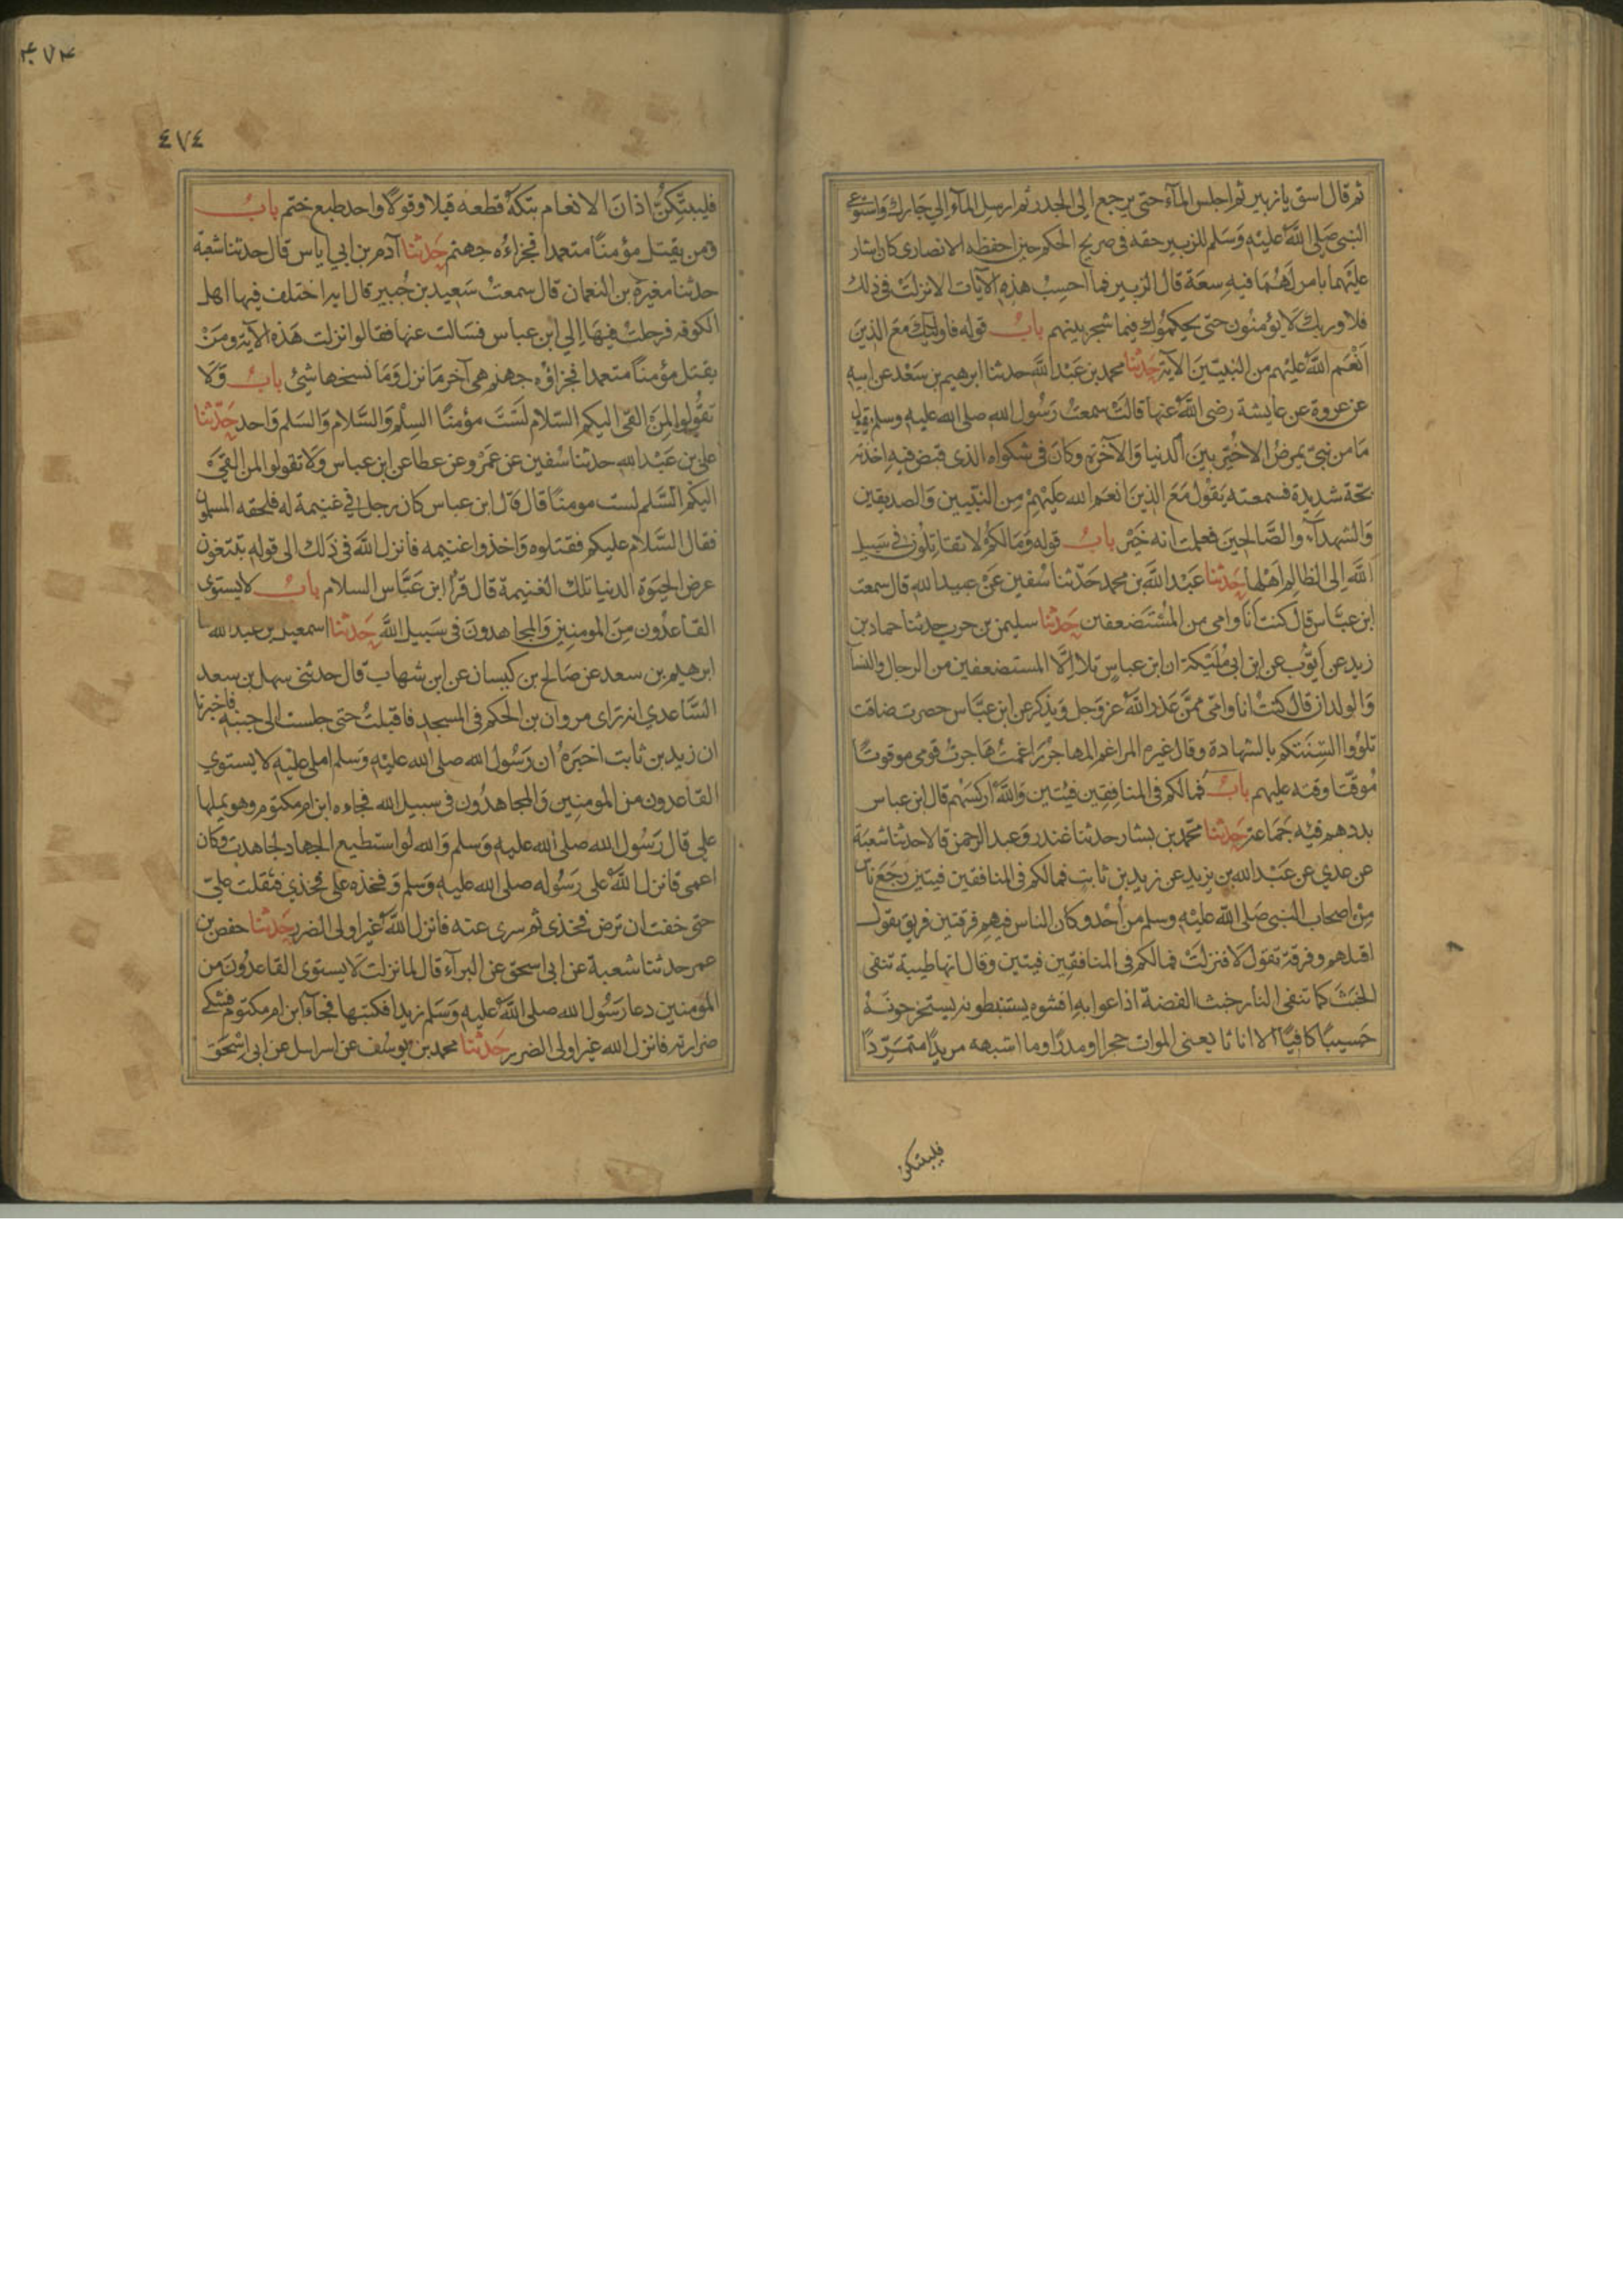 ثم قال اسق يا زبير ثم احبس المآء حتى يرجع الى الجدر ثم ارسل المآء الي جارك واستوعى
النبي صلى الله عليه وسلم للزبير حقه في صريح الحكم حين احفظه الانصارى كان اشار
عليهما بامر لهما فيه سعة قال الزبير فما احسب هذه الآيات الا نزلت في ذلك
فلا وربك لا يؤمنون حتى يحكموك فيما شجر بينهم باب قوله فاولئك مع الذين
انعم الله عليهم من النبيين الآية حدثنا محمد بن عبد الله حدثنا ابرهيم بن سعد عن ابيه
عن عروة عن عايشة رضى الله عنها قالت سمعت رسول الله صلى الله عليه وسلم يقول
ما من نبي يمرض الا خير بين الدنيا والآخرة وكان في شكواه الذى قبض فيه اخذته
بحة شديدة فسمعته يقول مع الذين انعم الله عليهم من النبيين والصديقين
والشهدآء والصالحين فعلمت انه خير باب قوله وما لكم لا تقاتلون في سبيل
الله الى الظالم اهلها حدثنا عبد الله بن محمد حدثنا سفين عن عبيد الله قال سمعت
ابن عباس قال كنت انا وامى من المستضعفين حدثنا سليمن بن حرب حدثنا حماد بن
زيد عن ايوب عن ابن ابى مليكة ان ابن عباس تلا الا المستضعفين من الرجال والنسآ
والولدان قال كنت انا وامى ممن عذر الله عز وجل ويذكر عن ابن عباس حصرت ضاقت
تلووا السنتكم بالشهادة وقال غيره المراغم المهاجر راغمت هاجرت قومى موقوتا
موقتا وقته عليهم باب فما لكم في المنافقين فئتين والله اركسهم قال ابن عباس
بددهم فيه جماعة حدثنا محمد بن بشار حدثنا غندر وعبد الرحمن قالا حدثنا شعبة
عن عدي عن عبد الله بن يزيد عن زيد بن ثابت فما لكم في المنافقين فيتين رجع ناس
من اصحاب النبي صلى الله عليه وسلم من احد وكان الناس فيهم فرقتين فريق يقول
اقتلهم وفرقة تقول لا فنزلت فما لكم في المنافقين فيتين وقال انها طيبة تنفى
الخبث كما تنفى النار خبث الفضة اذاعوا به افشوه يستنبطونه يستخرجونه
حسيبا كافيا الا اناثا يعنى الموات حجرا او مدرا وما اشبهه مريدا متمردا
فليبتكن
٤٧٤
٤٧٤
فليبتكن اذان الانعام بتكه قطعه قيلا وقولا واحد طبع ختم باب
ومن يقتل مؤمنا متعمدا فجزاءه جهنم حدثنا آدم بن ابي اياس قال حدثنا شعبة
حدثنا مغيرة بن النعمان قال سمعت سعيد بن جبير قال اية اختلف فيها اهل
الكوفه فرحلت فيها الى ابن عباس فسالت عنها فقالوا نزلت هذه الآية ومن
يقتل مؤمنا متعمدا فجزاؤه جهنم هي آخر ما نزل وما نسخها شئ باب ولا
تقولوا لمن القى اليكم السلام لست مؤمنا السلم والسلام والسلم واحد حدثنا
علي بن عبد الله حدثنا سفين عن عمرو عن عطا عن ابن عباس ولا تقولوا لمن القى
اليكم السلم لست مومنا قال قال ابن عباس كان رجل في غنيمة له فلحقه المسلمون
فقال السلام عليكم فقتلوه واخذوا غنيمه فانزل الله في ذلك الى قوله تبتغون
عرض الحيوة الدنيا تلك الغنيمة قال قرأ ابن عباس السلام باب لا يستوى
القاعدون من المومنين والمجاهدون في سبيل الله حدثنا اسمعيل بن عبد الله ثنا
ابرهيم بن سعد عن صالح بن كيسان عن ابن شهاب قال حدثني سهل بن سعد
الساعدي انه راى مروان بن الحكم في المسجد فاقبلت حتى جلست الى جنبه فاخبرنا
ان زيد بن ثابت اخبره ان رسول الله صلى الله عليه وسلم املى عليه لا يستوي
القاعدون من المومنين والمجاهدون في سبيل الله فجاءه ابن ام مكتوم وهو يملها
علي قال رسول الله صلى الله عليه وسلم والله لو استطيع الجهاد لجاهدت وكان
اعمى فانزل الله على رسوله صلى الله عليه وسلم وفخذه على فخذي فثقلت علي
حتى خفت ان ترض فخذى ثم سرى عنه فانزل الله غير اولى الضرر حدثنا حفص بن
عمر حدثنا شعبة عن ابى اسحق عن البرآء قال لما نزلت لا يستوى القاعدون من
المومنين دعا رسول الله صلى الله عليه وسلم زيدا فكتبها فجآء ابن ام مكتوم فشكى
ضرارته فانزل الله غير اولى الضرر حدثنا محمد بن يوسف عن اسرايل عن ابى اسحق